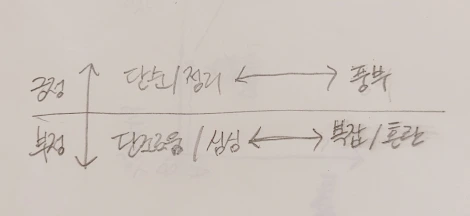 긍정 단순/정리 ↔ 풍부
부정 단조로움/심심 ↔ 복잡/혼란